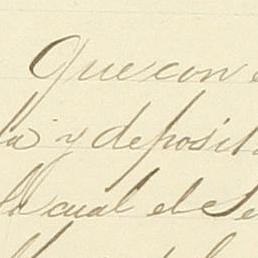 Que con
y deposit
la cual el Se